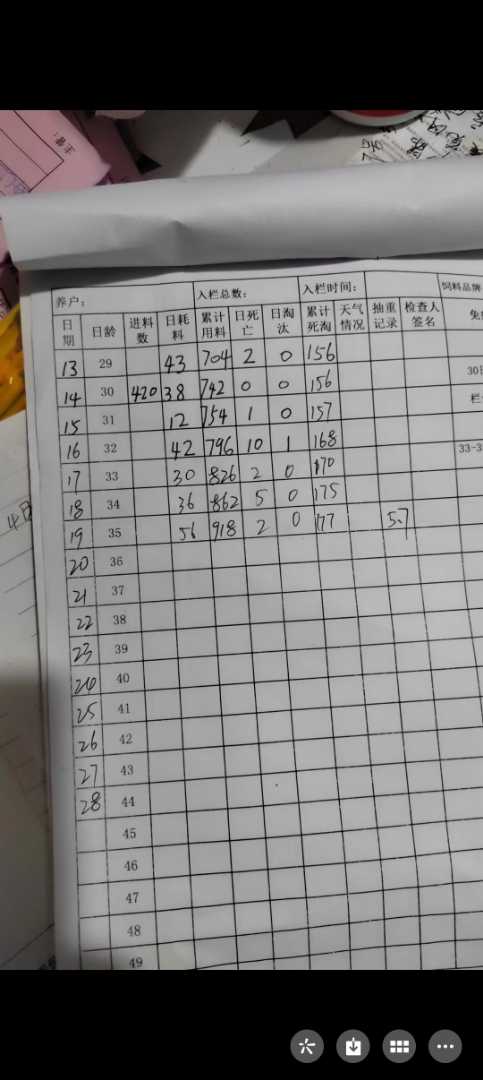 养户： 入栏总数： 入栏时间： 饲料品牌
日期 日龄 进料数 日耗料 累计用料 日死亡 日淘汰 累计死淘 天气情况 抽重记录 检查人签名 免
13 29 43 704 2 0 156
14 30 420 38 742 0 0 156 30日
15 31 12 754 1 0 157 栏
16 32 42 796 10 1 168
17 33 30 826 2 0 170 33-3
18 34 36 862 5 0 175
19 35 56 918 2 0 177 5.7
20 36
21 37
22 38
23 39
24 40
25 41
26 42
27 43
28 44
45
46
47
48
49